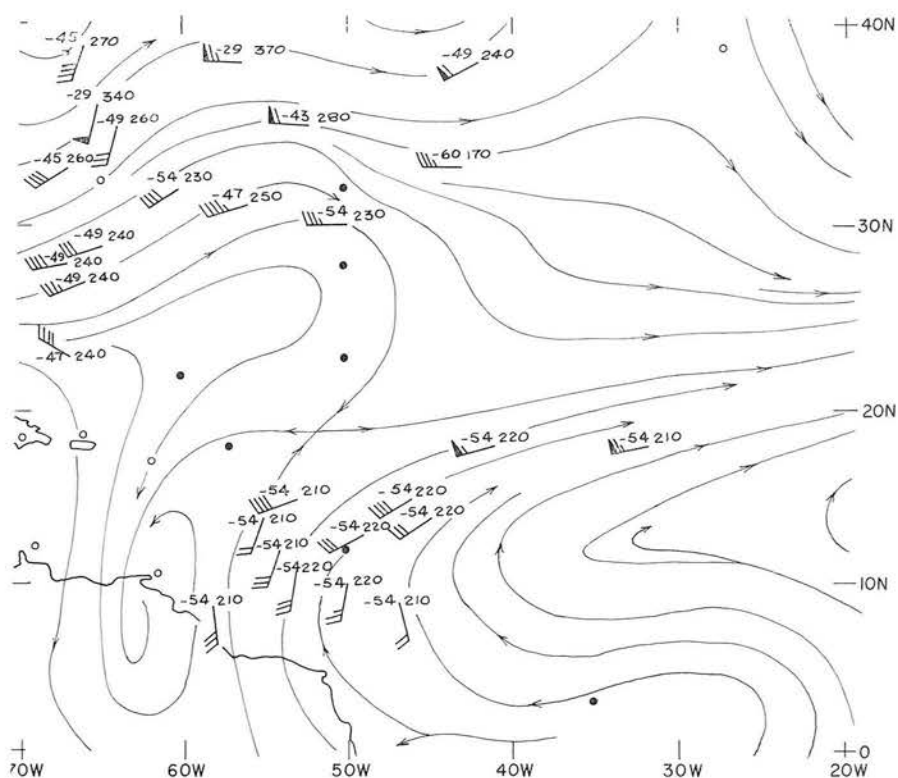 40N
-45 270
-29 370
-49 240
-29 340
-49 260
-43 280
-45 260
-60 170
-54 230
-47 250
-54 230
30N
-49 240
-49 240
-49 240
-47 240
20N
-54 220
-54 210
-54 210
-54 220
-54 210
-54 220
-54 220
-54 210
-54 220
-54 220
10N
-54 210
-54 210
0
70W
60W
50W
40W
30W
20W